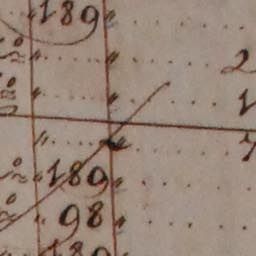 189
n.º 〃 〃 2
n.º 〃 〃 1
〃 7
n.º 189
n.º 98
189